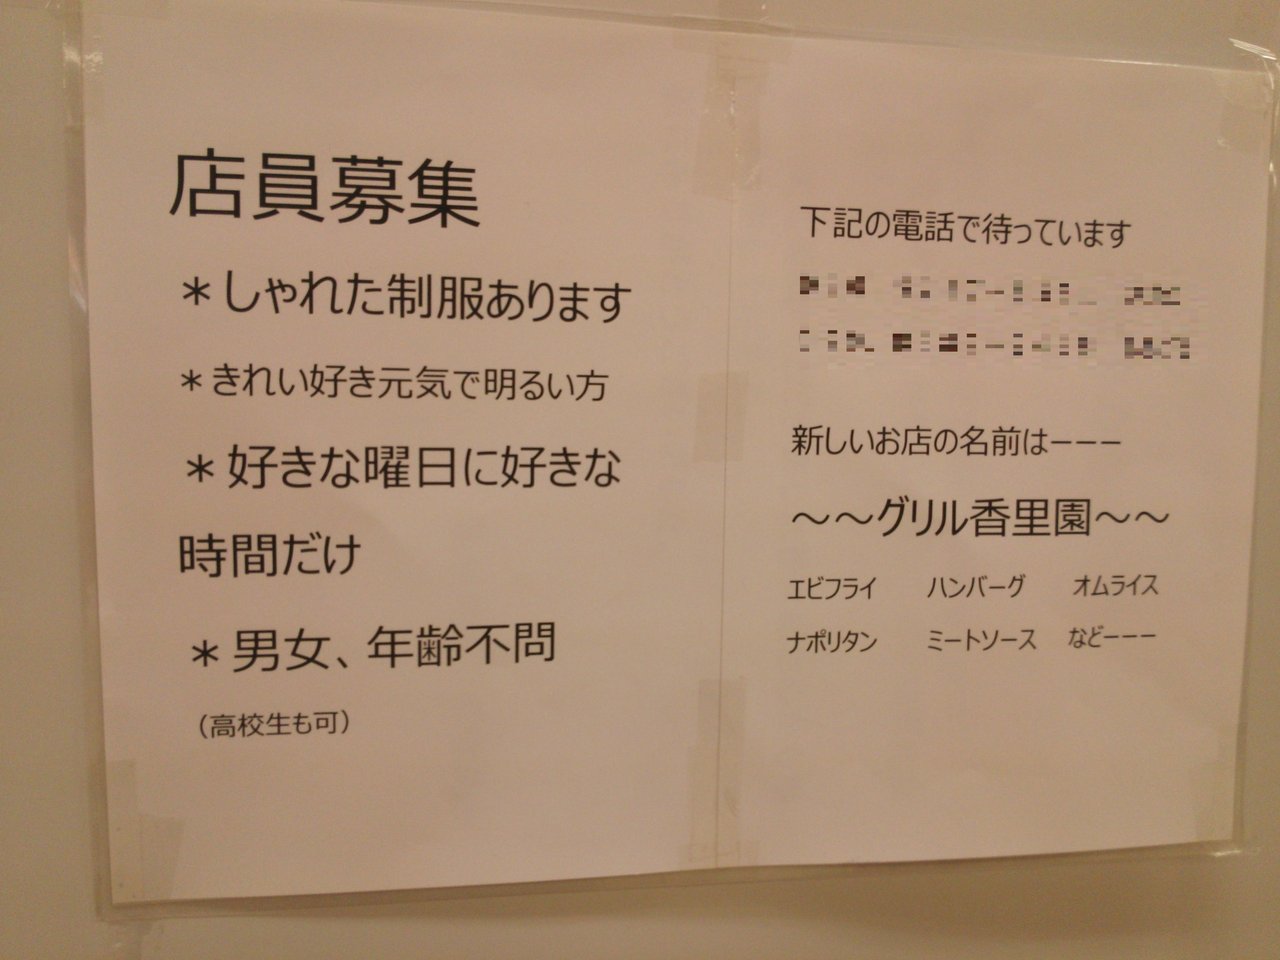 店員募集
＊しゃれた制服あります
＊きれい好き元気で明るい方
＊好きな曜日に好きな
時間だけ
＊男女、年齢不問
（高校生も可）
下記の電話で待っています
新しいお店の名前はーーー
～～グリル香里園～～
エビフライ　ハンバーグ　オムライス
ナポリタン　ミートソース　などーーー